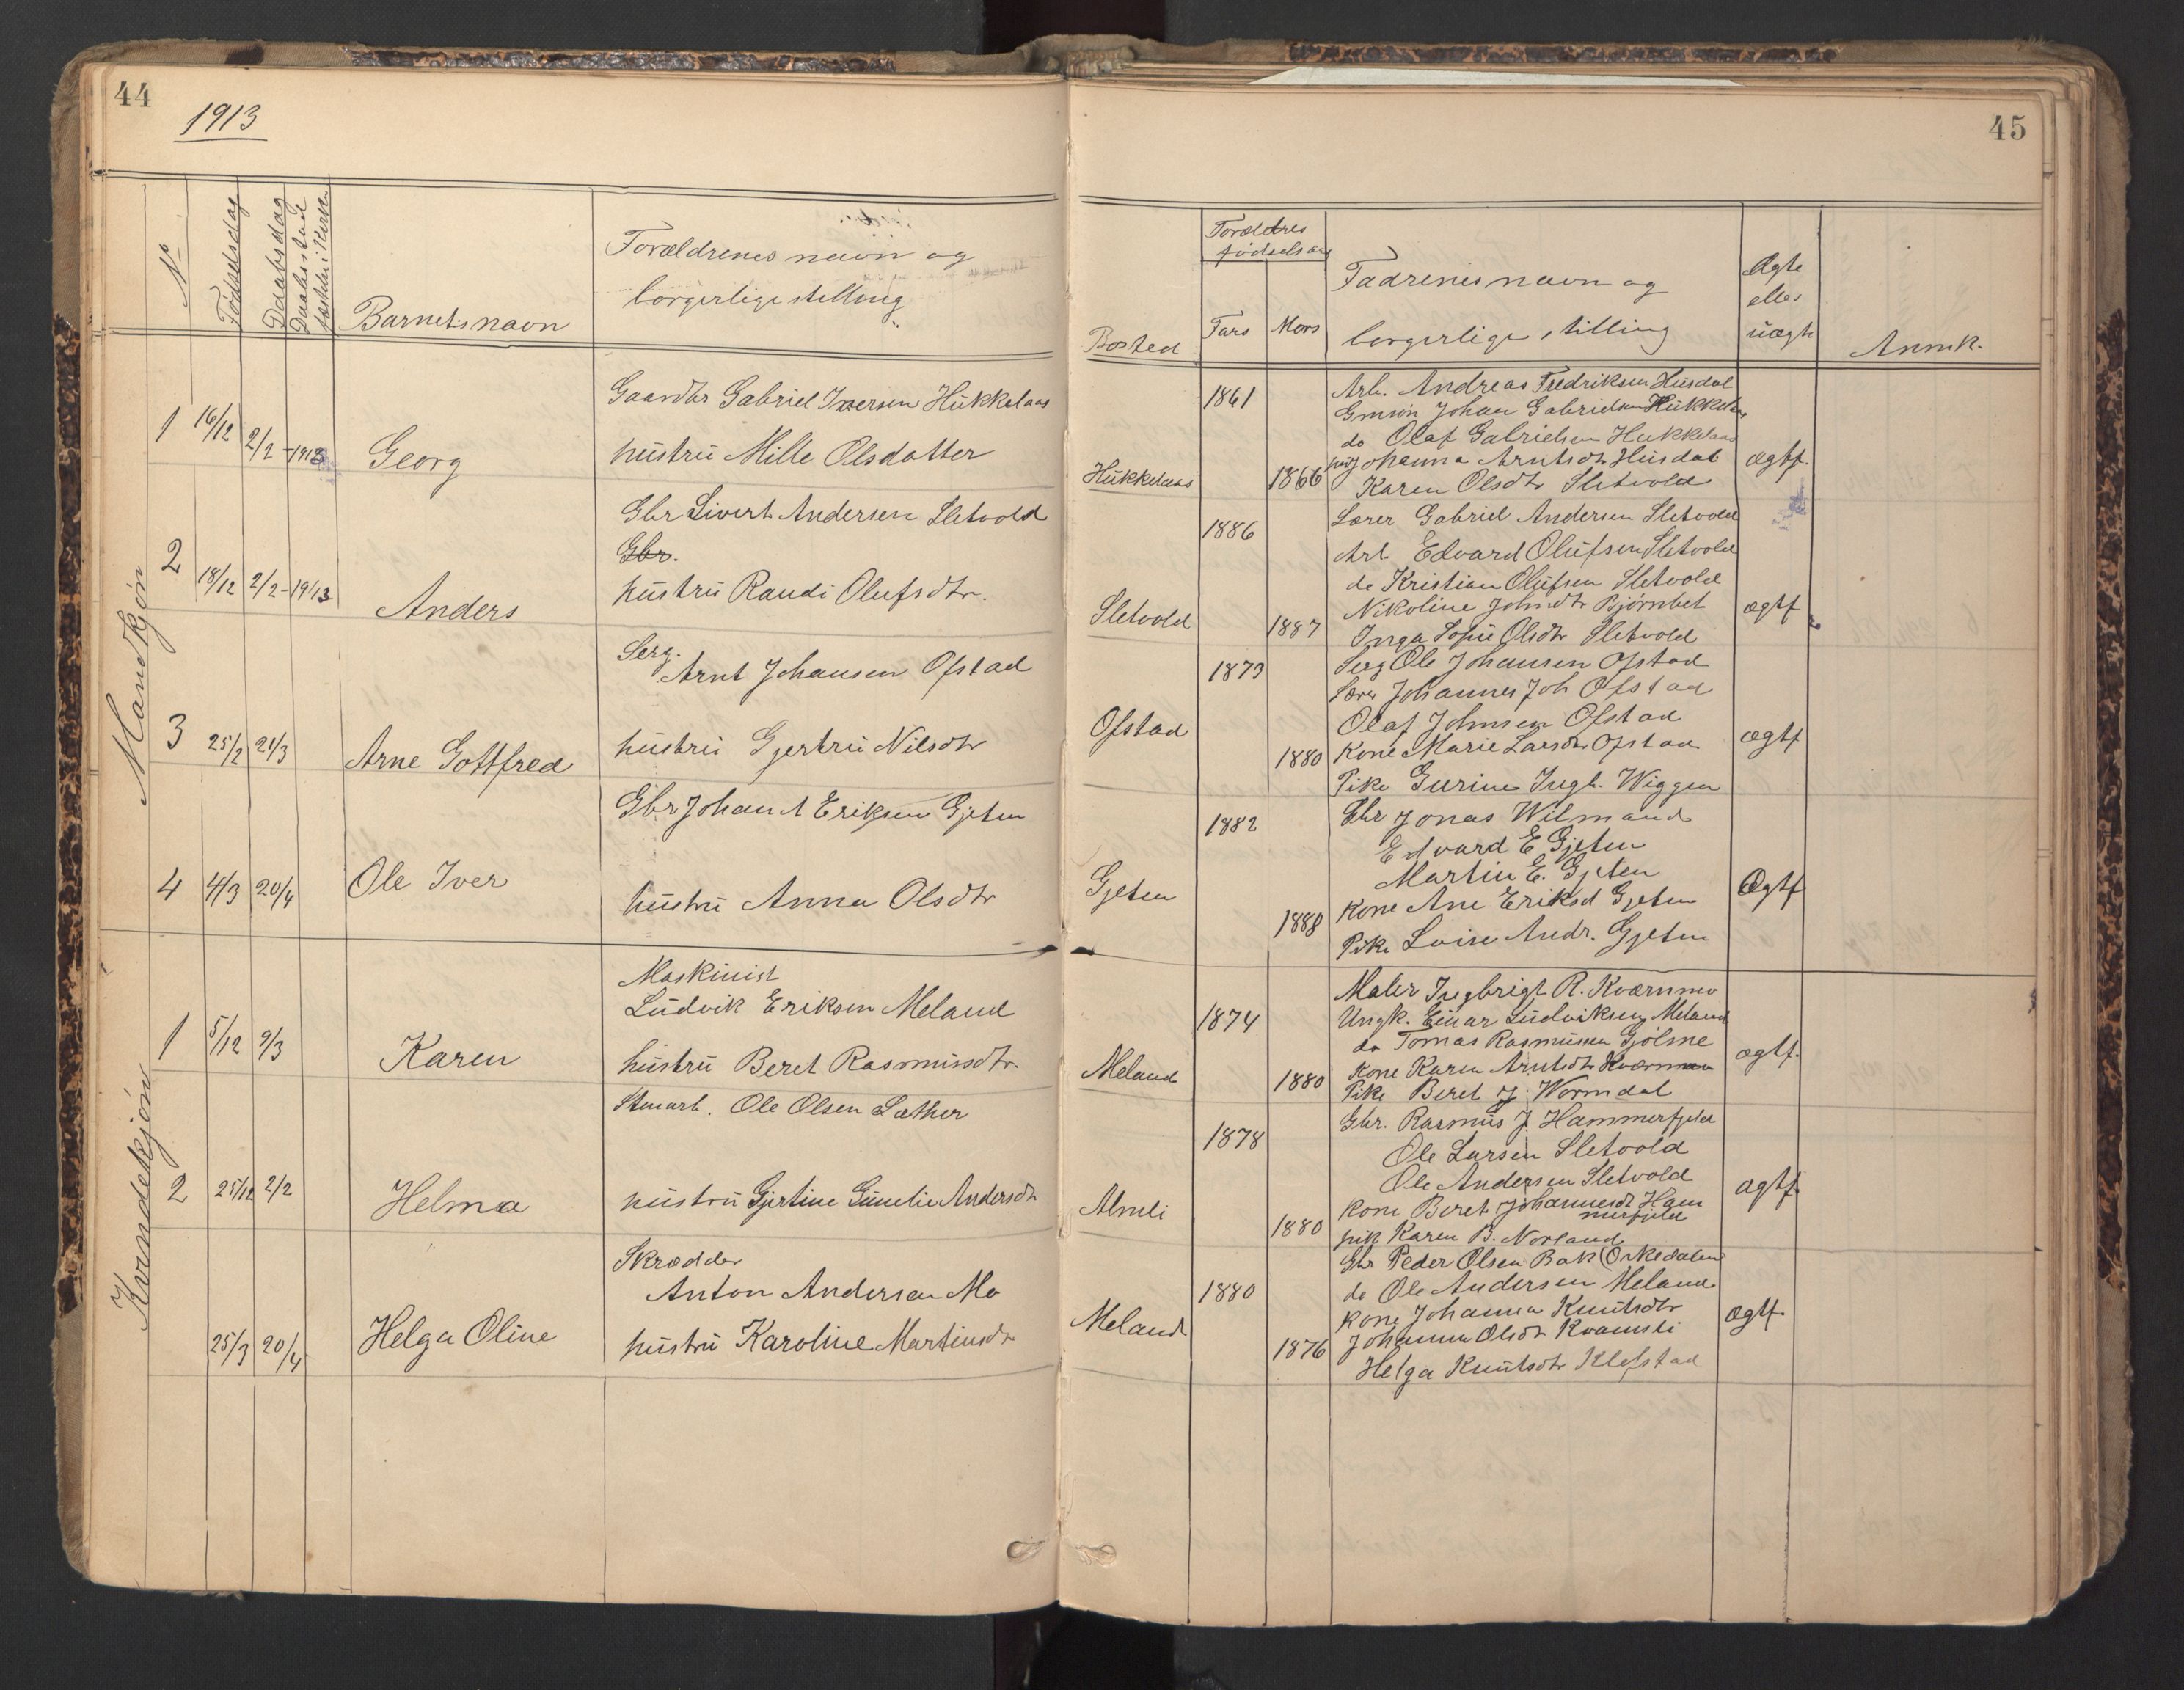 44
1913
No
Fødselsdag
Daabsdag
Daabsstad
Barnets navn
Forældrenes navn og
borgerlige stilling
Mandkjøn
1 16/12 2/2-1913 Georg
Gaardbr Gabriel Iversen Hukkelaas
hustru Mille Olsdatter
2 18/12 2/2-1913 Anders
Gbr Sivert Andersen Sletvold
Gbr.
hustru Randi Olufsdtr.
3 25/2 24/3 Arne Gottfred
Serg.
Arnt Johansen Ofstad
hustru Gjertru Nilsdtr
4 4/3 20/4 Ole Iver
Gbr Johan A Eriksen Gjeten
hustru Anna Olsdtr
Kvindekjøn
1 5/12 9/3 Karen
Maskinist
Ludvik Eriksen Meland
hustru Beret Rasmusdtr.
2 25/12 2/2 Helma
Stenarb. Ole Olsen Læther
hustru Gjertine Gunelie Andersdtr
25/3 20/4 Helga Oline
Skrædder
Anton Andersen Mo
hustru Karoline Martinsdtr
45
Bosted
Forældres
fødselsaar
Fars Mors
Fadrenes navn og
borgerlige stilling
Ægte
eller
uægte
Anmk.
Hukkelaas 1861 1866 ægtf.
Arb. Andreas Fredriksen Husdal
Gmsøn Johan Gabrielsen Hukkelaas
do Olaf Gabrielsen Hukkelaas
Johanna Arntsdtr Husdal
Karen Olsdtr Sletvold
Sletvold 1886 1887 ægtf
Lærer Gabriel Andersen Sletvold
Arb Edvard Olufsen Sletvold
do Kristian Olufsen Sletvold
Nikoline Johnsdtr Bjørnbet
Inga Sofie Olsdtr Sletvold
Ofstad 1873 1880 ægtf
Serg Ole Johansen Ofstad
Lærer Johannes Joh Ofstad
Olaf Johnsen Ofstad
Kone Marie Larsdtr Ofstad
Pike Gurine Ingb. Wiggen
Gjeten 1882 1888 Ægtf
Gbr Jonas Wilmand
Edvard E Gjeten
Martin E. Gjeten
Kone Ane Eriksd Gjeten
Pike Lovise Andr. Gjeten
Meland 1874 1880 ægtf.
Maler Ingbrigt R. Kværnmo
Ungk. Einar Ludviksen Meland
do Tomas Rasmussen Gjølme
Kone Karen Arntsdtr Kværnmo
Pike Beret J. Wormdal
Almli 1878 1880 ægtf.
Gbr. Rasmus J. Hammerfjeld
Ole Larsen Sletvold
Ole Andersen Sletvold
Kone Beret Johannesdt Ham
merfjeld
pik Karen B. Norland
Meland 1880 1876 ægtf.
Gbr Peder Olsen Bak (Orkedalen
do Ole Andersen Meland
Kone Johanna Knutsdtr
Johanna Olsdtr Kvamsli
Helga Knutsdtr Klefstad